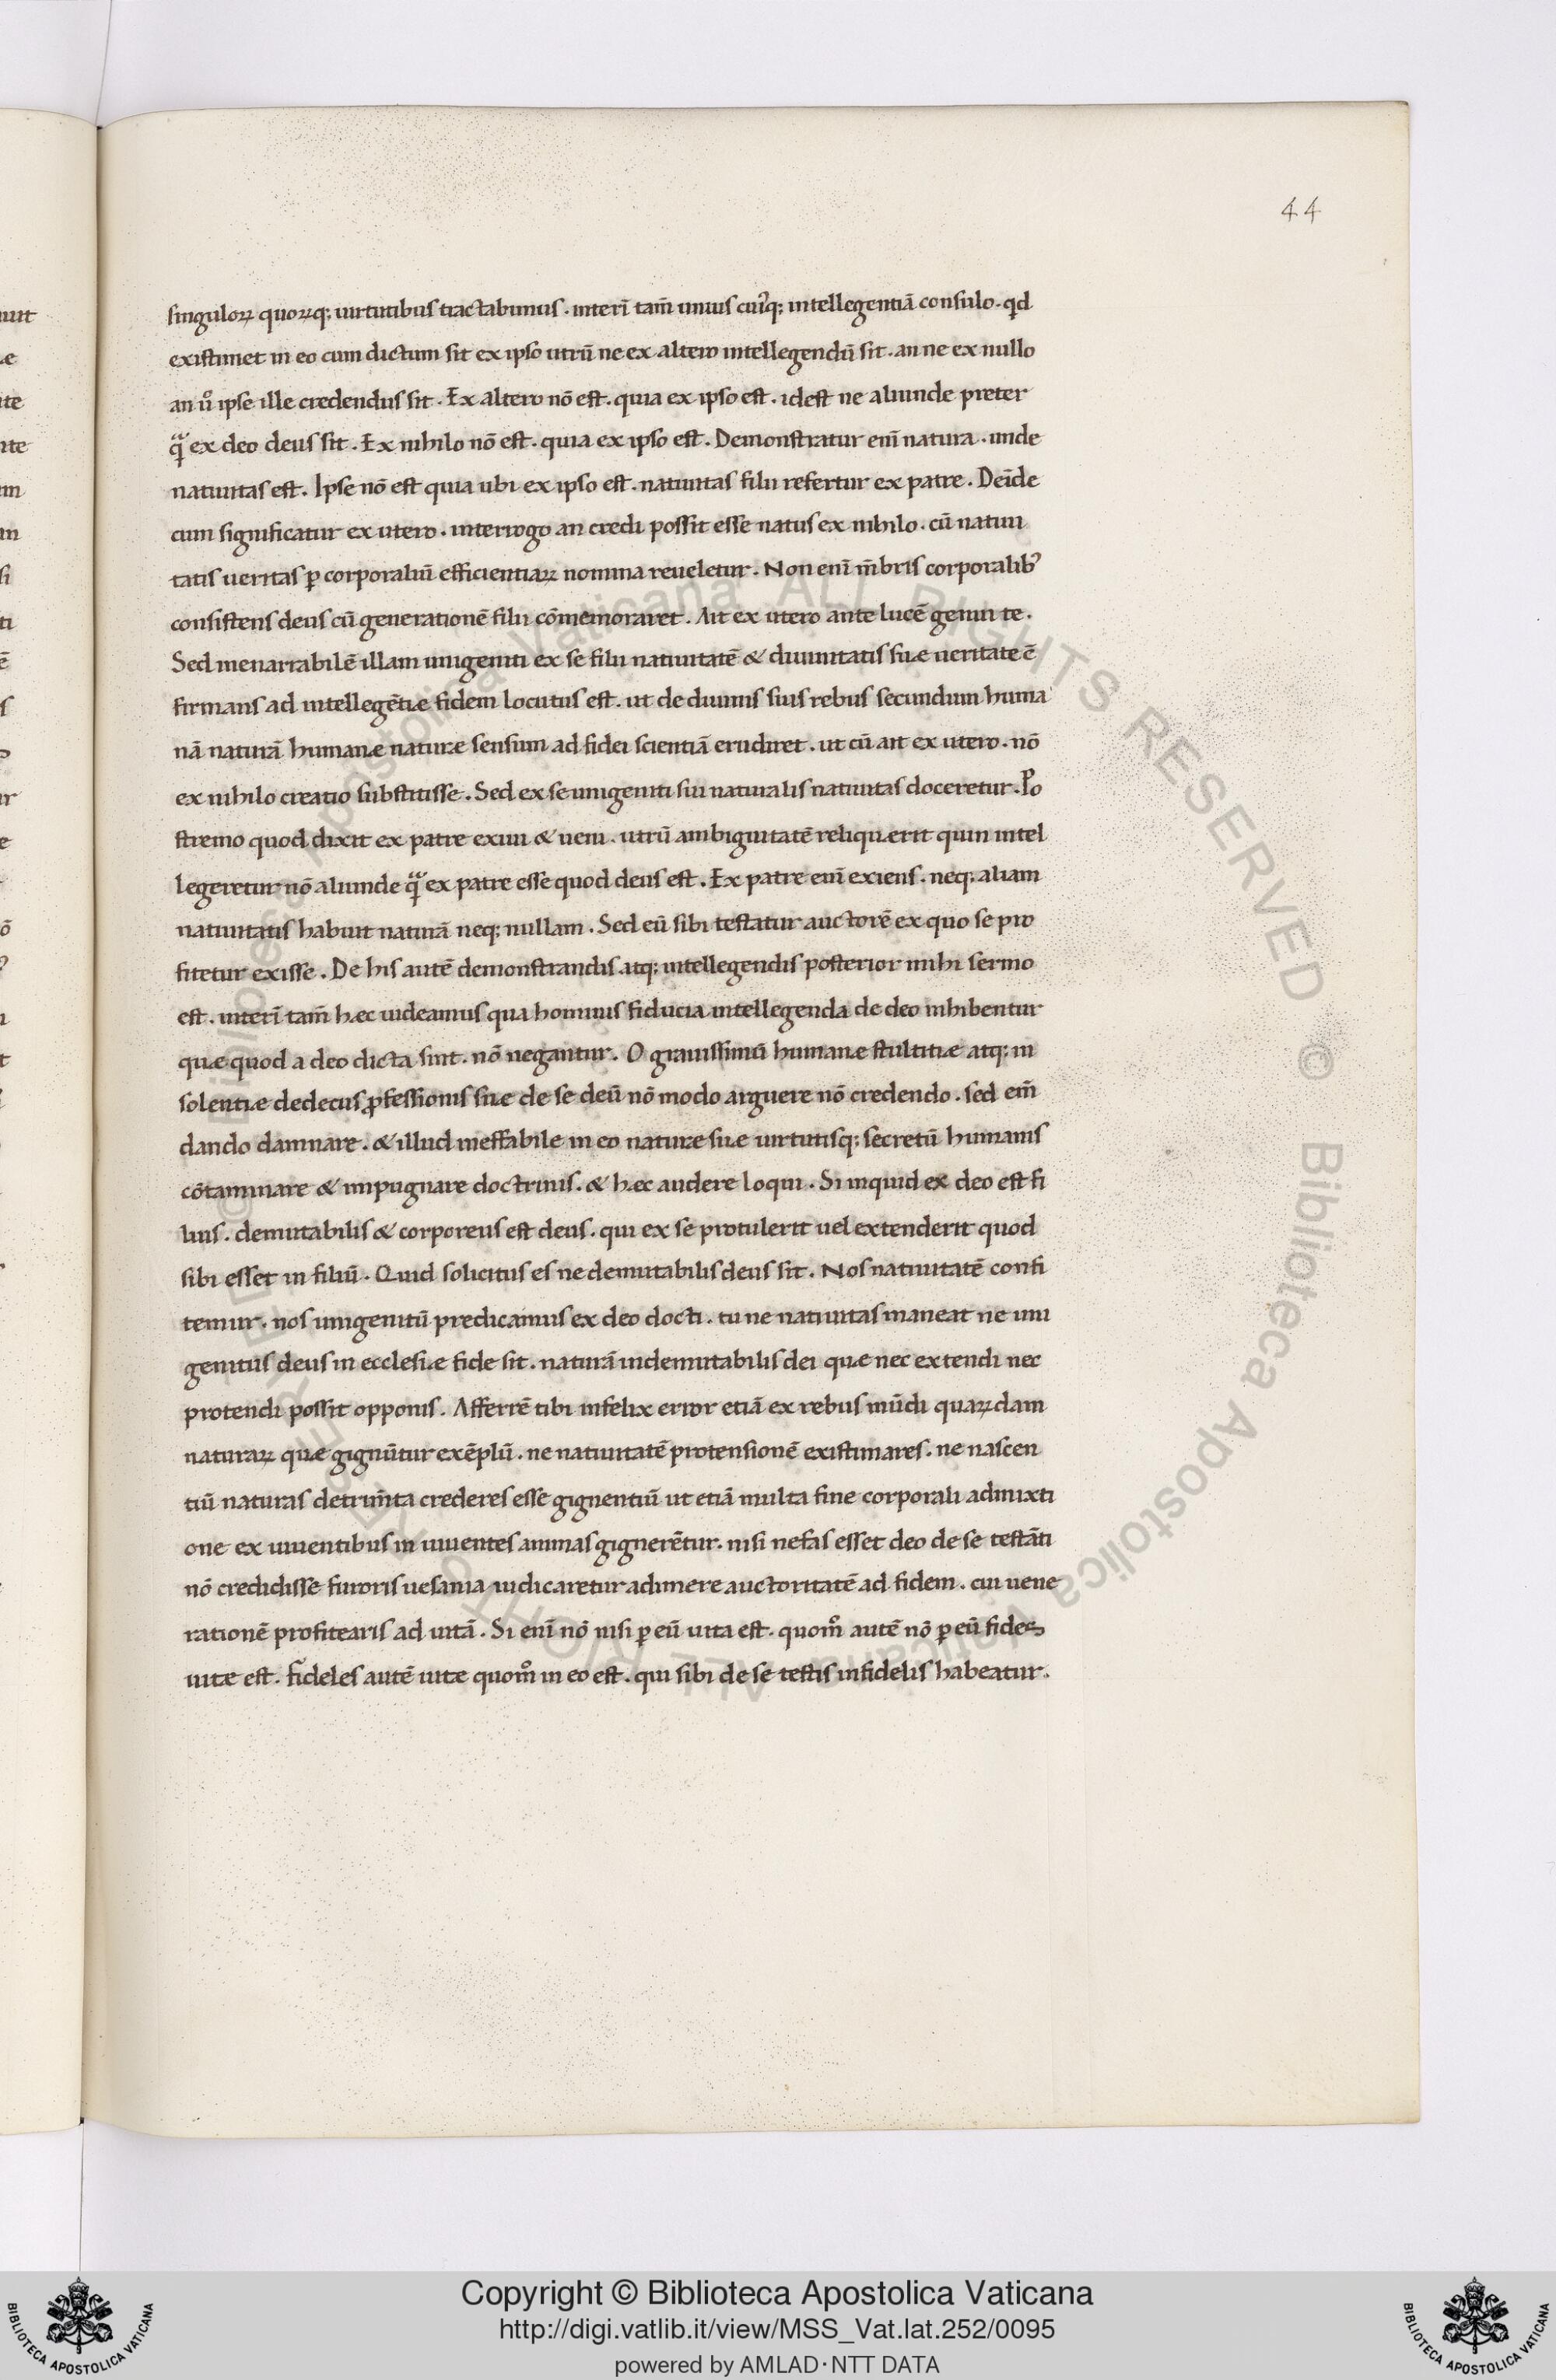 44
singuloꝝ quoꝝq; uirtutibus tractabimus . interī tam̄ unius cuiꝰq; intellegentiā consulo . qd
existimet in eo cum dictum sit ex ipso utrū ne ex altero intellegendū sit . an ne ex nullo
an u̇ ipse ille credendus sit . Ex altero nō est . quia ex ipso est . idest ne aliunde preter
qͣ̄ ex deo deus sit . Ex nihilo nō est . quia ex ipso est . Demonstratur eni᷑ natura . unde
natiuitas est . Ipse nō est quia ubi ex ipso est . natiuitas filii refertur ex patre . Deīde
cum significatur ex utero . interrogo an credi possit esse natus ex nihilo . cū natiui
tatis ueritas ꝑ corporaliū efficientiaꝝ nomina reueletur . Non enī m̄bris corporalibꝰ
consistens deus cū generationē filii cōmemoraret . Ait ex utero ante lucē genui te .
Sed inenarrabilē illam unigeniti ex se filii natiuitatē & diuinitatis suæ ueritate ē
firmans ad intellegētiæ fidem locutus est . ut de diuinis suis rebus secundum huma
nā naturā humanæ naturæ sensum ad fidei scientiā erudiret . ut cū ait ex utero . nō
ex nihilo creatio substitisse . Sed ex se unigeniti sui naturalis natiuitas doceretur . Po
stremo quod dixit ex patre exiui & ueni . utrū ambiguitatē reliquerit quin intel
legeretur nō aliunde qͣ̄ ex patre esse quod deus est . Ex patre enī exiens . neq; aliam
natiuitatis habuit naturā neq; nullam . Sed eū sibi testatur auctorē ex quo se pro
fitetur exisse . De his autē demonstrandis atq; intellegendis posterior mihi sermo
est . interī tam̄ hæc uideamus qua hominis fiducia intellegenda de deo inhibentur
quæ quod a deo dicta sint . nō negantur . O grauissimū humanæ stultitiæ atq; in
solentiæ dedecus ꝓfessionis suæ de se deū nō modo arguere nō credendo . sed em̄
dando damnare . & illud ineffabile in eo naturæ suæ uirtutisq; secretū humanis
cōtaminare & impugnare doctrinis . & hæc audere loqui . Si inquid ex deo est fi
lius . demutabilis & corporeus est deus . qui ex se protulerit uel extenderit quod
sibi esset in filiū . Quid solicitus es ne demutabilis deus sit . Nos natiuitatē confi
temur . nos unigenitū predicamus ex deo docti . tu ne natiuitas maneat ne uni
genitus deus in ecclesiæ fide sit . naturā indemutabilis dei quæ nec extendi nec
protendi possit opponis . Afferrē tibi infelix error etiā ex rebus mūdi quaꝝdam
naturaꝝ quæ gignūtur exēplū . ne natiuitatē protensionē existimares . ne nascen
tiū naturas detrim̄ta crederes esse gignentiū ut etiā multa sine corporali admixti
one ex uiuentibus in uiuentes animas gignerētur . nisi nefas esset deo de se testāti
nō credidisse furoris uesania iudicaretur adimere auctoritatē ad fidem . cui uene
rationē profitearis ad uitā . Si enī nō nisi ꝑ eū uita est . quom̊ autē nō ꝑ eū fides
uitæ est . fideles autē uitæ quom̊ in eo est . qui sibi de se testis infidelis habeatur .
Copyright © Biblioteca Apostolica Vaticana
http://digi.vatlib.it/view/MSS_Vat.lat.252/0095
powered by AMLAD·NTT DATA